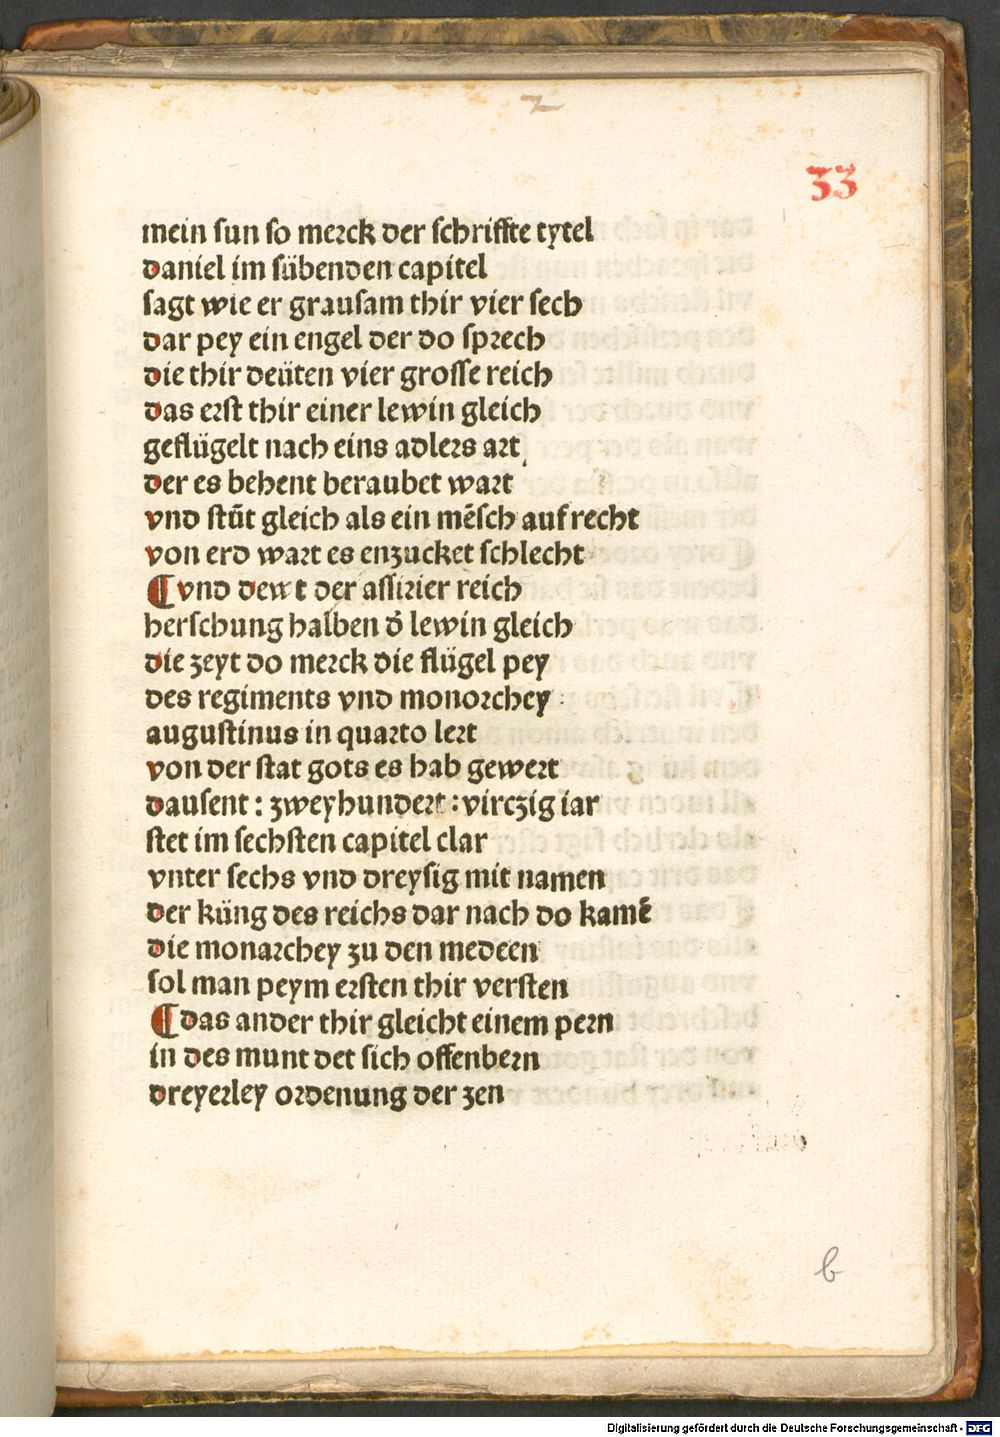 2
33
mein sun so merck der schriffte tytel
daniel im sübenden capitel
sagt wie er grausam thir vier sech
dar pey ein engel der do sprech
die thir deüten vier grosse reich
das erst thir einer lewin gleich
geflügelt nach eins adlers art
der es behent beraubet wart
vnd stūt gleich als ein mēsch auf recht
von erd wart es enzucket schlecht
¶ vnd dewt der assirier reich
herschung halben d̄ lewin gleich
die zeyt do merck die flügel pey
des regiments vnd monorchey
augustinus in quarto lert
von der stat gots es hab gewert
dausent : zweyhundert : virczig iar
stet im sechsten capitel clar
vnter sechs vnd dreysig mit namen
der küng des reichs dar nach do kamē
die monarchey zu den medeen
sol man peym ersten thir versten
¶ das ander thir gleicht einem pern
in des munt det sich offenbern
dreyerley ordenung der zen
b
Digitalisierung gefördert durch die Deutsche Forschungsgemeinschaft - DFG